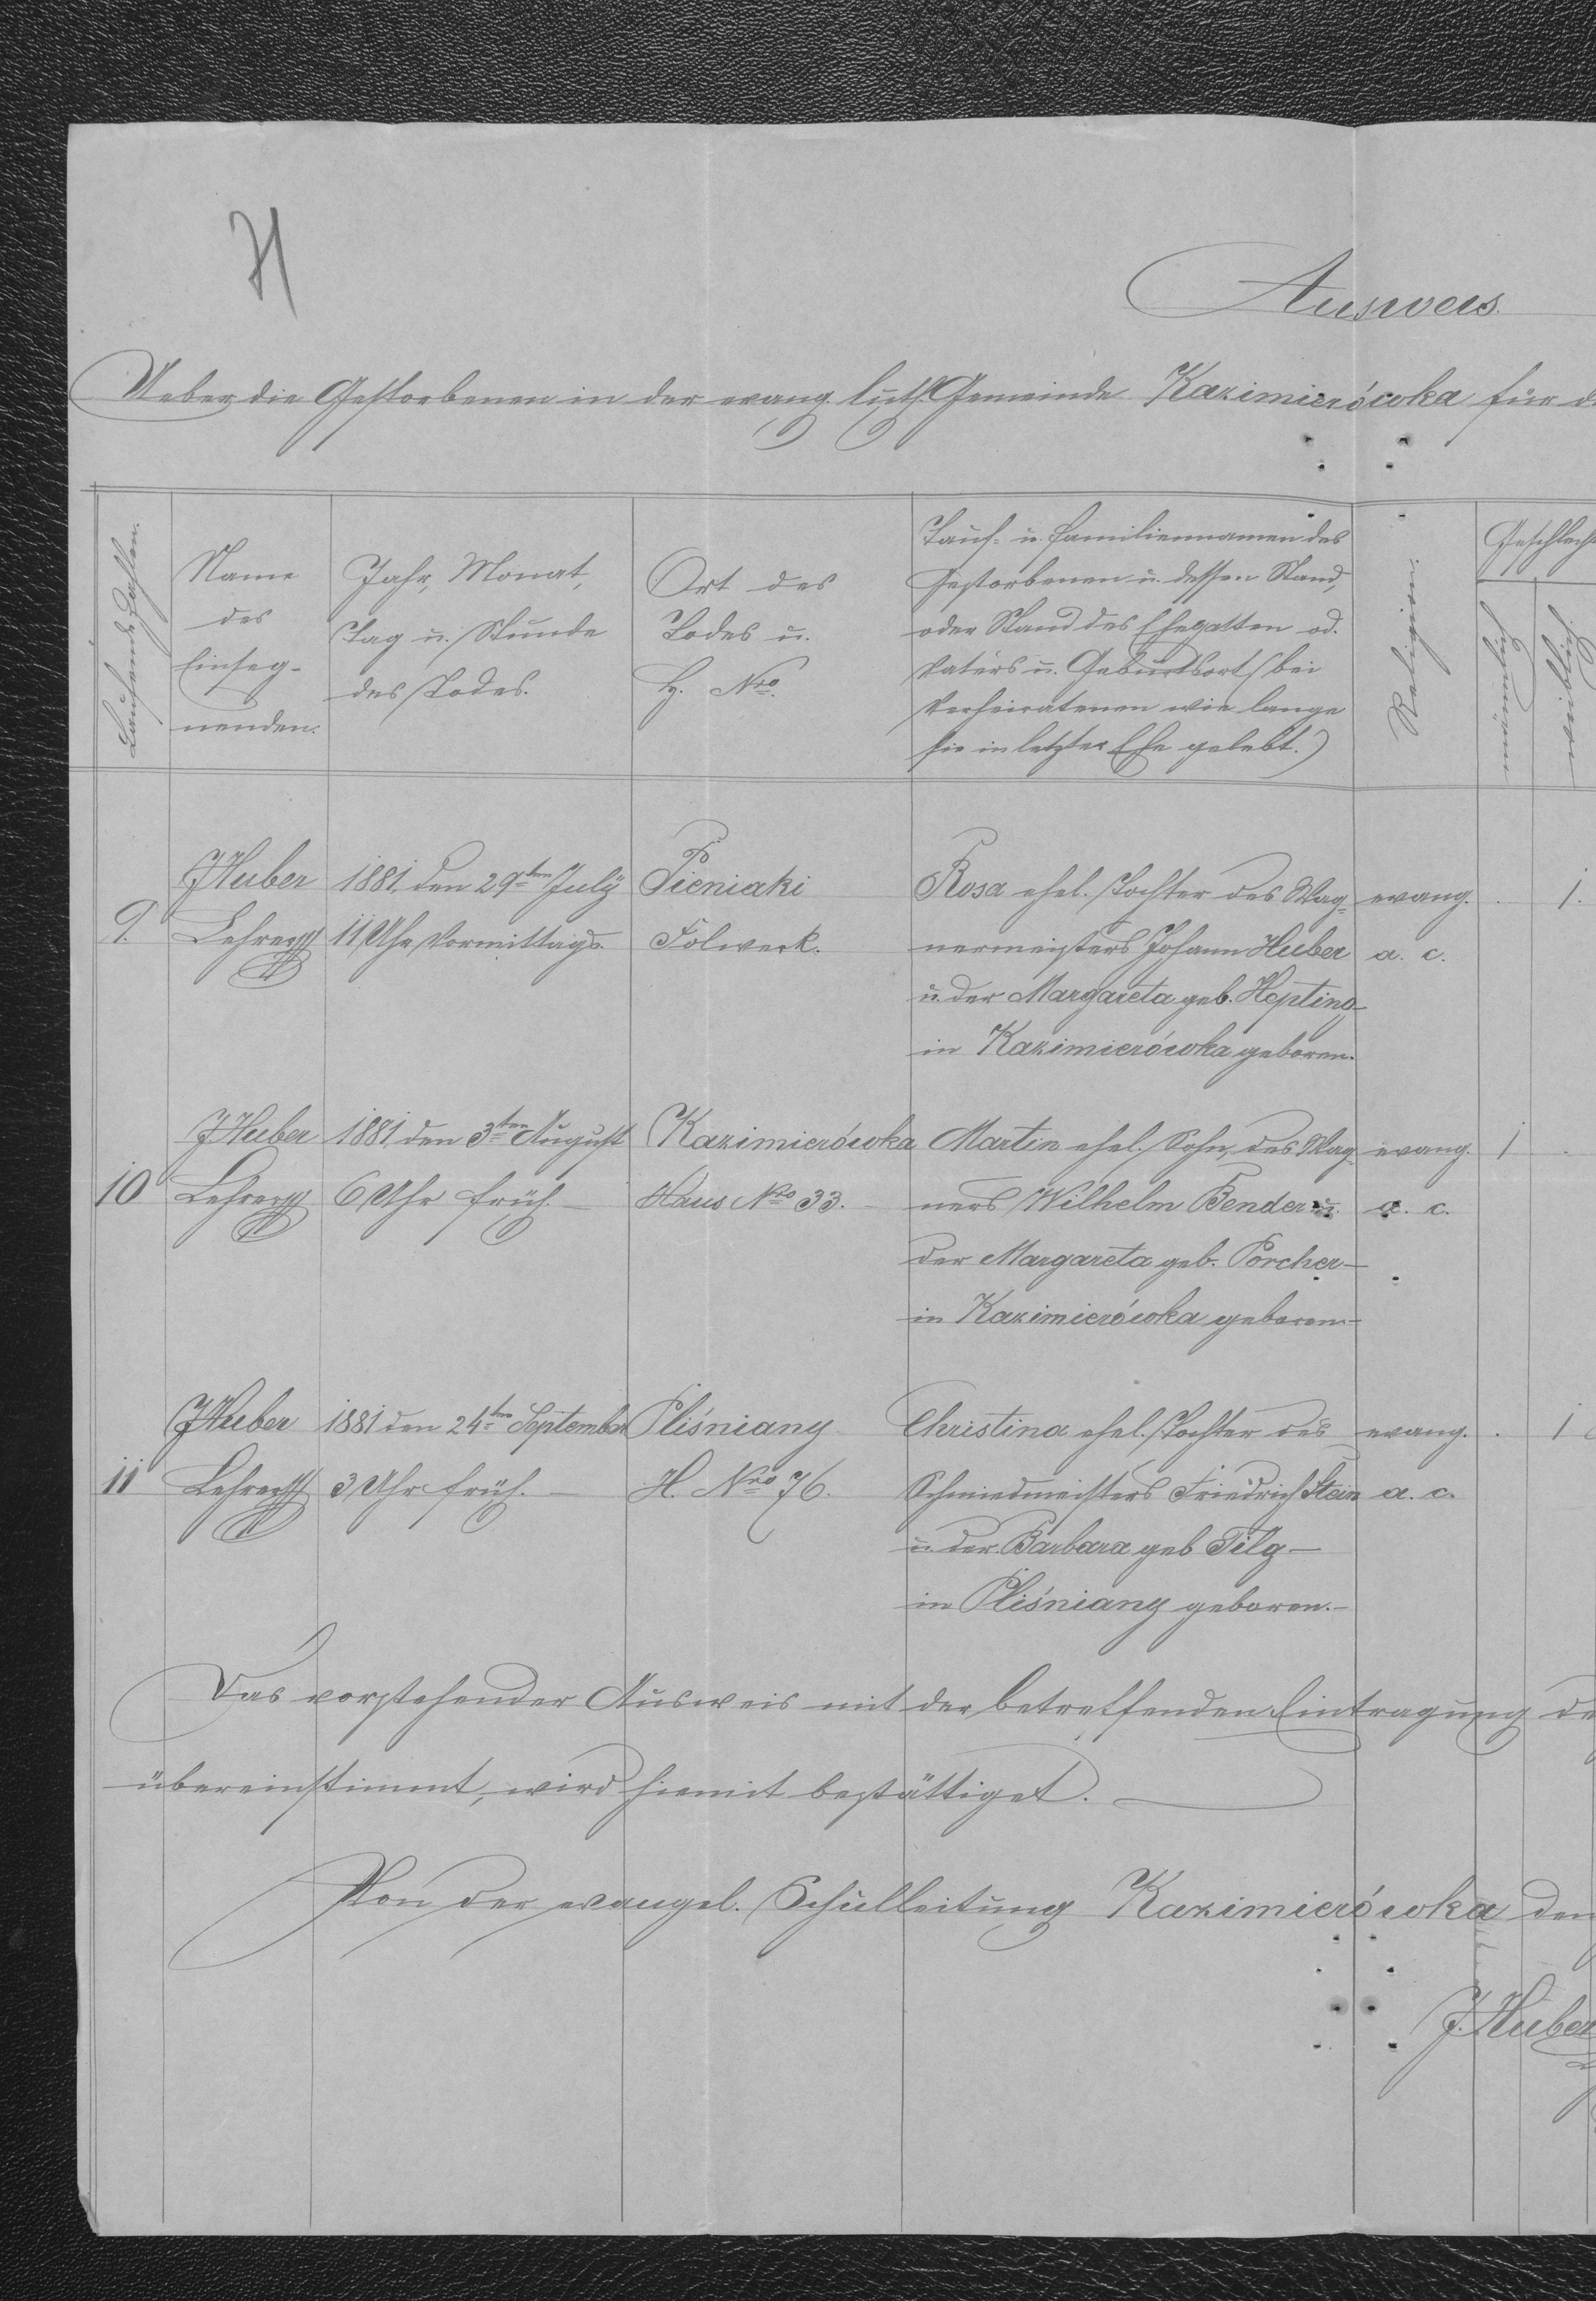 H
Ausweis.
Ueber die Gestorbenen in der evang. luth. Gemeinde Kazimierówka für d
Laufende Zahlen.
Name
des
Einseg-
nenden.
Jahr, Monat,
Tag u. Stunde
des Todes.
Ort des
Todes u.
H. Nro.
Tauf- u. Familiennamen des
Gestorbenen u. dessen Stand,
oder Stand des Ehegatten od.
Vaters u. Geburtsort (bei
Verheiratenen wie lange
sie in letzter Ehe gelebt.)
Religion.
Geschlecht
männlich
weiblich
9.
J Huber
Lehrer
1881, den 29ten July
11 Uhr Vormittags.
Pieniaki
Folwerk.
Rosa ehel. Tochter des Wag-
nermeisters Johann Huber
u. der Margareta geb. Hepting
in Kazimierówka geboren.
evang.
a. c.
. 1.
10
J Huber
Lehrer
1881 den 3ten August
6 Uhr früh. —
Kazimierówka
Haus Nro 33. -
Martin ehel. Sohn des Wag-
ners Wilhelm Bender u.
der Margareta geb. Porcher —
in Kazimierówka geboren. —
evang.
a. c.
1 .
11
J Huber
Lehrer
1881 den 24ten September
3 Uhr früh. —
Pliśniany
H. Nro 76.
Christina ehel. Tochter des
Schmiedmeisters Friedrich Stein
u. der Barbara geb Tilg —
in Pliśniany geboren. —
evang.
a. c.
. 1
Das vorstehender Ausweis mit der betreffenden Eintragung de
übereinstimmt, wird hiemit bestättiget. —
Von der evangel. Schulleitung Kazimierówka den
J. Huber